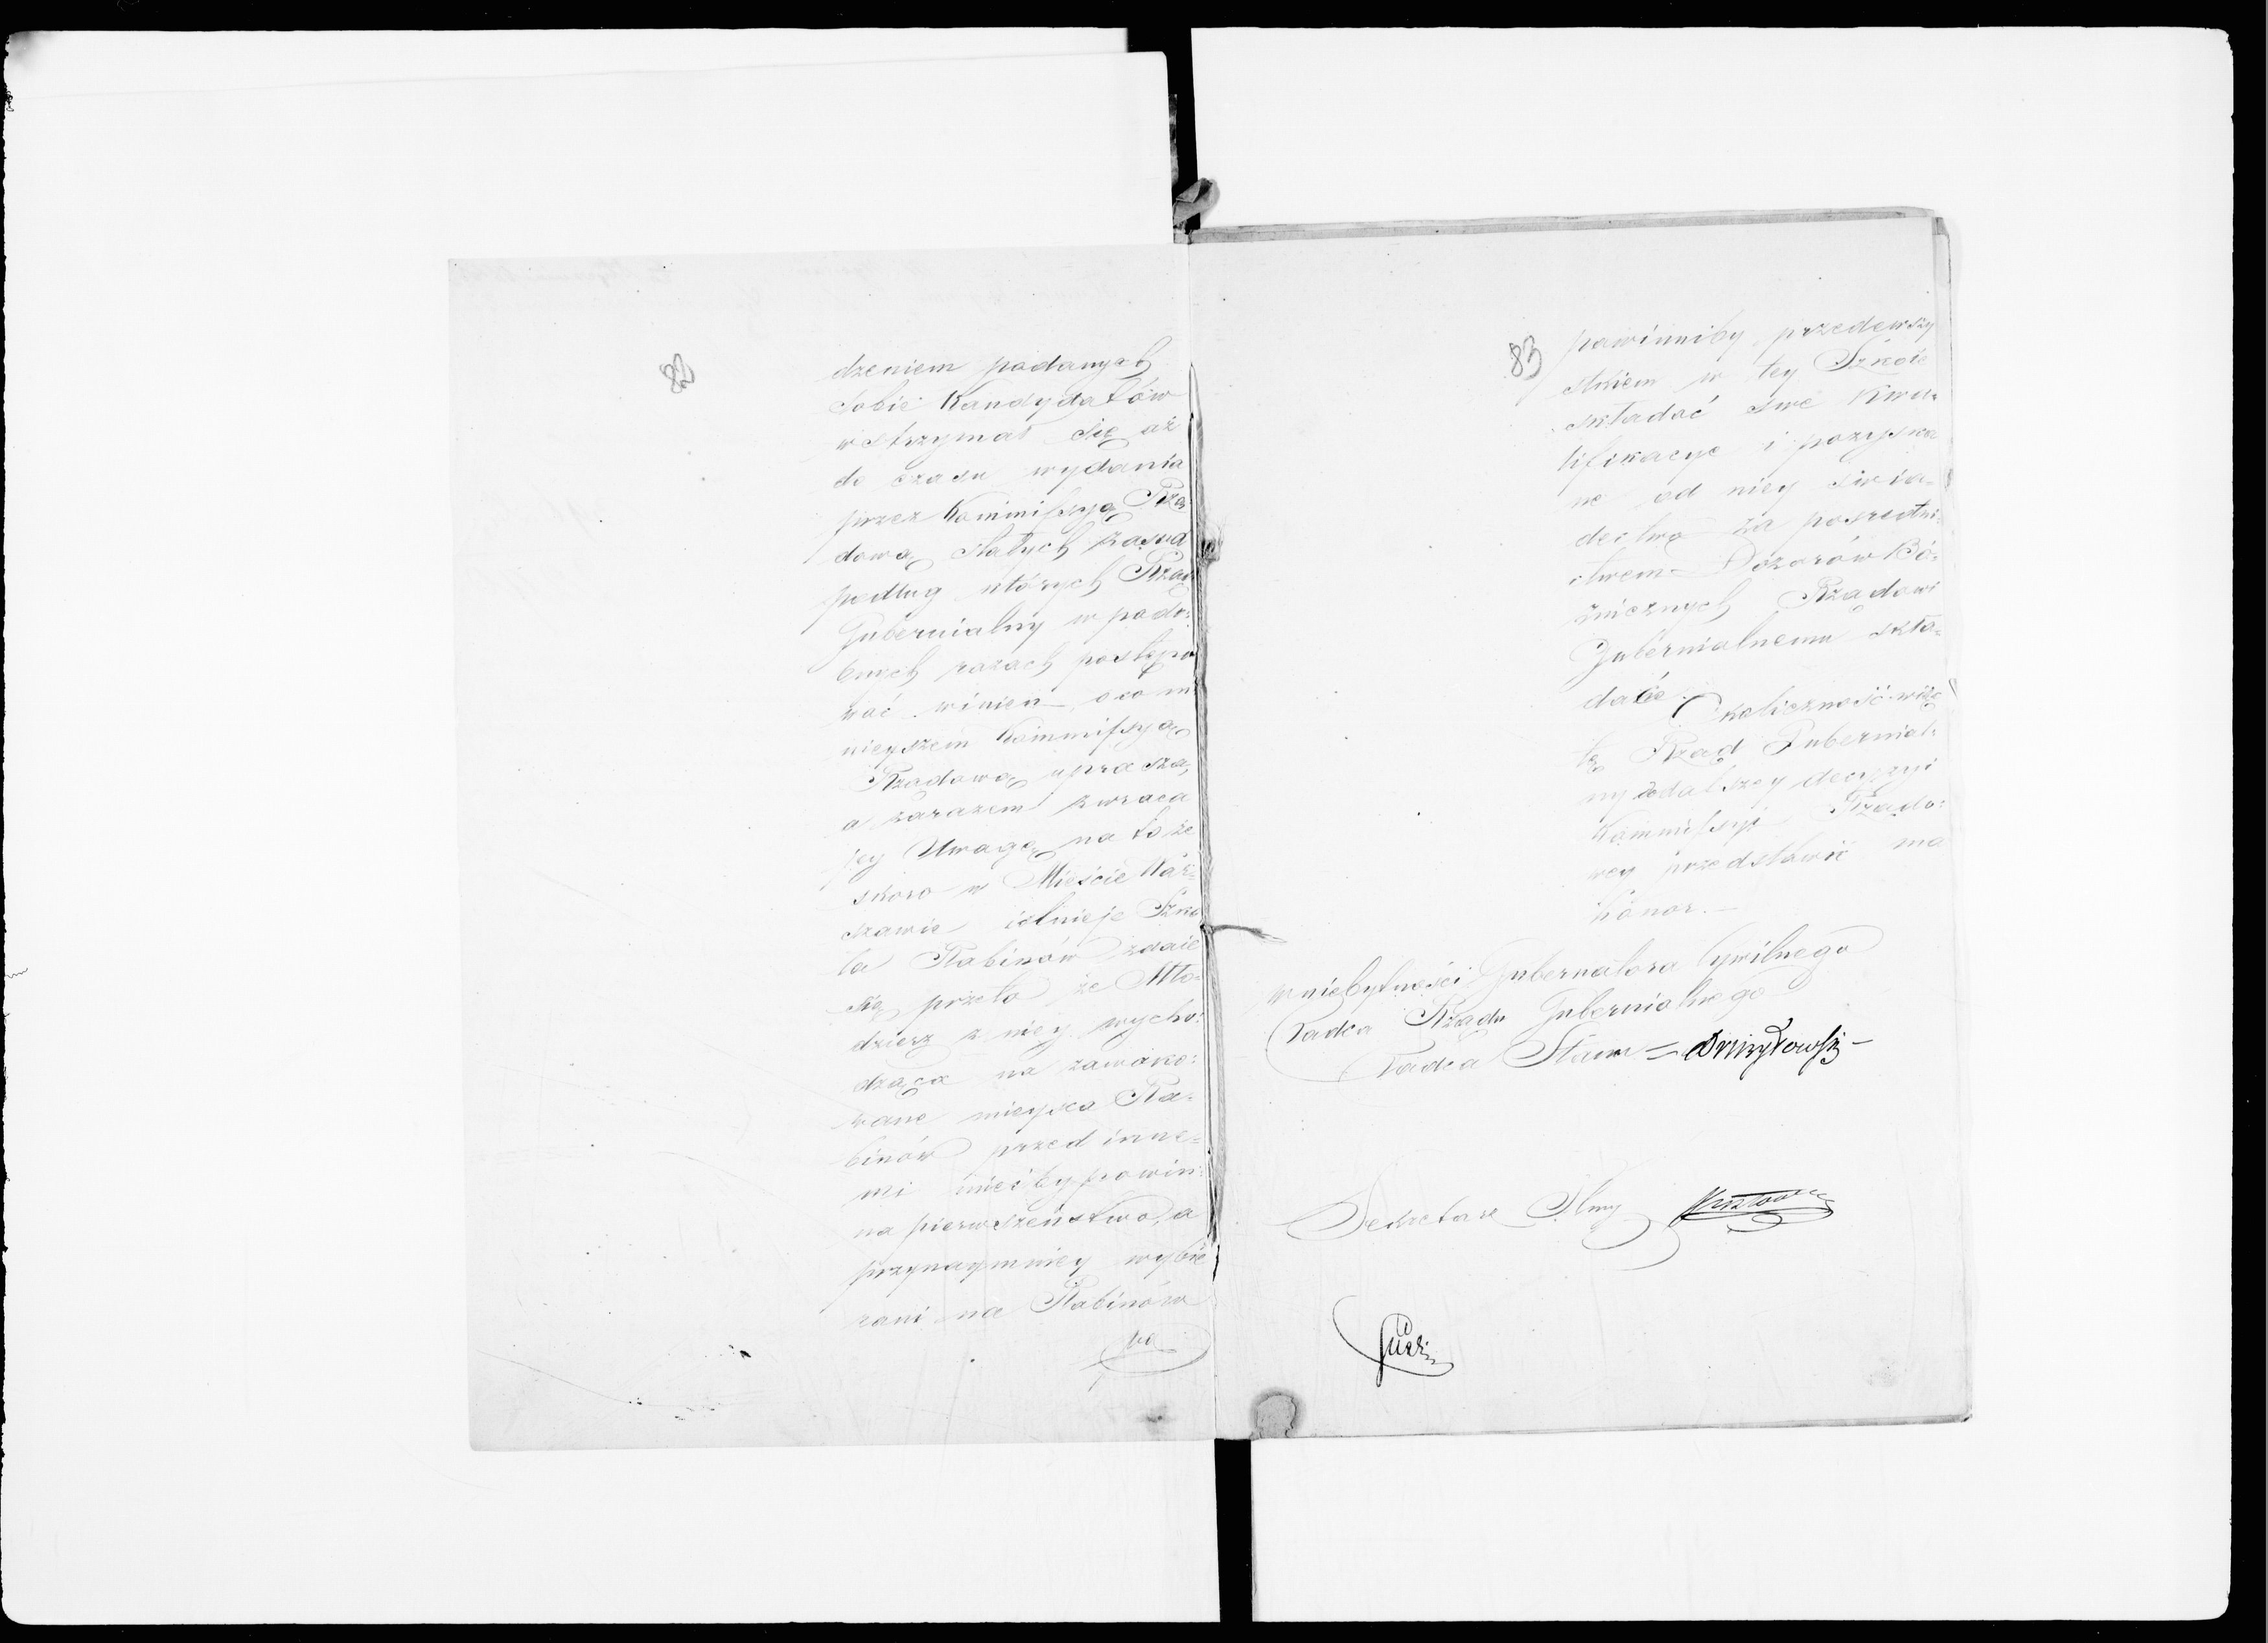 82
dzeniem podanych
sobie Kandydatów
wstrzymał się aż
do czasu wydania
przez Kommissyą Rzą
dową stałych zasad
podług których Rząd
Gubernialny w podo:
bnych razach postępo
wać winien, o co ni
nieyszem Kommissyą
Rządową uprasza,
a zarazem zwraca
jey Uwagę na to że
skoro w Mieście War:
szawie istnieje Szko
ła Rabinów zdaie
się przeto że Mło:
dzież z niey wycho:
dząca na zawako:
wane mieysca Ra:
binów przed inne=
mi mieć by powin:
na pierwszeństwo, a
przynaymniey wybie
rani na Rabinów
po
83
powinniby przedewszy
stkiem w tey Szkole
składać swe Kwa:
lifikacye i pozyska
ne od niey świa=
dectwa za pośredni:
ctwem Dozorów Bó:
żnicznych Rządowi
Gubernialnemu skła=
dać.
Okoliczność więc
tę Rząd Gubernial:
ny do dalszey decyzyi
Kommissyi Rządo:
wey przedstawić ma
honor.—
w niebytności Gubernatora Cywilnego
Radca Rządu Gubernialnego
Radca Stanu =
Sekretarz Jlny